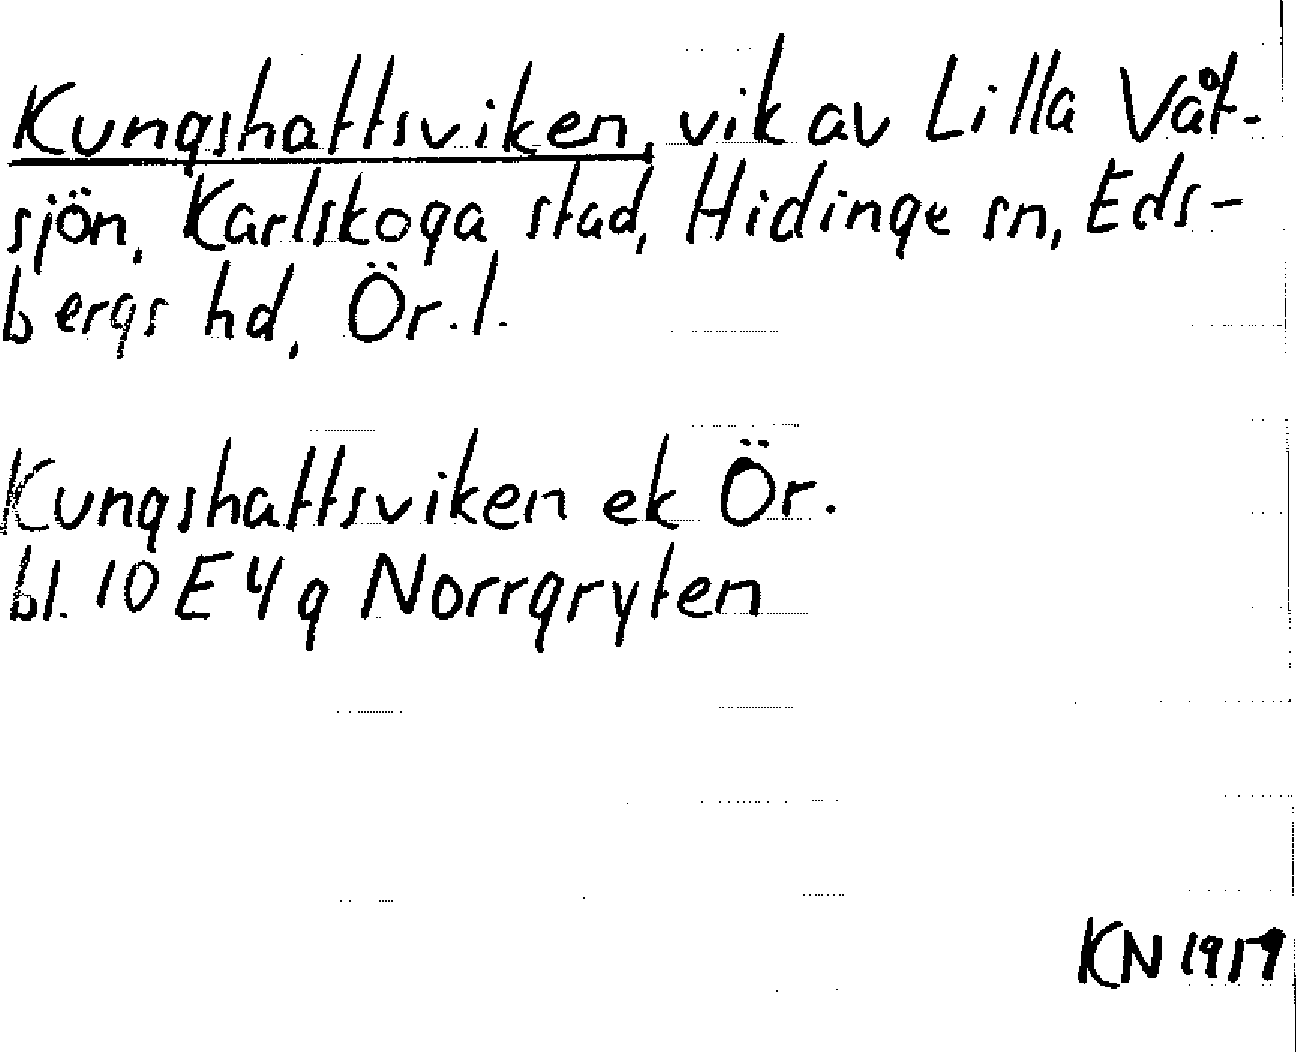 Kungshattsviken, vik av Lilla Våt-
sjön, Karlskoga stad, Hidinge sn, Eds-
bergs hd, Ör. l.
Kungshattsviken ek Ör.
bl. 10 E 4 g Norrgryten
KN 1959